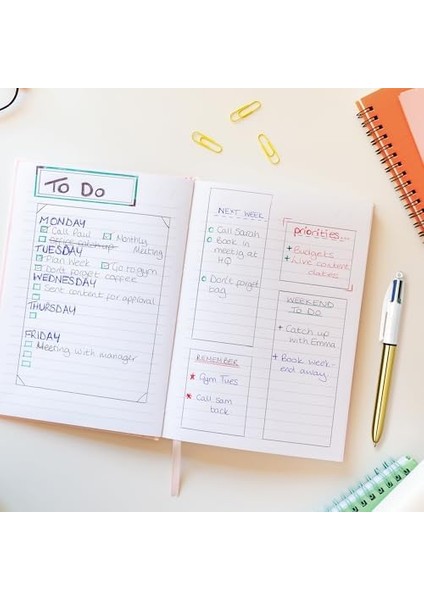 To Do
MONDAY
Call Paul Monthly
Meeting
TUESDAY
Plan Week Go to gym
Don't forget coffee
WEDNESDAY
Sent content for approval
THURSDAY
FRIDAY
Meeting with manager
NEXT WEEK
Call Sarah
Book in
meetig at
HQ
Don't forget
bag
REMEMBER
* Gym Tues
* Call sam
back
priorities...
+ Budgets
+ Live content
dates
WEEKEND
TO DO
+ Catch up
with Emma
+ Book week-
end away